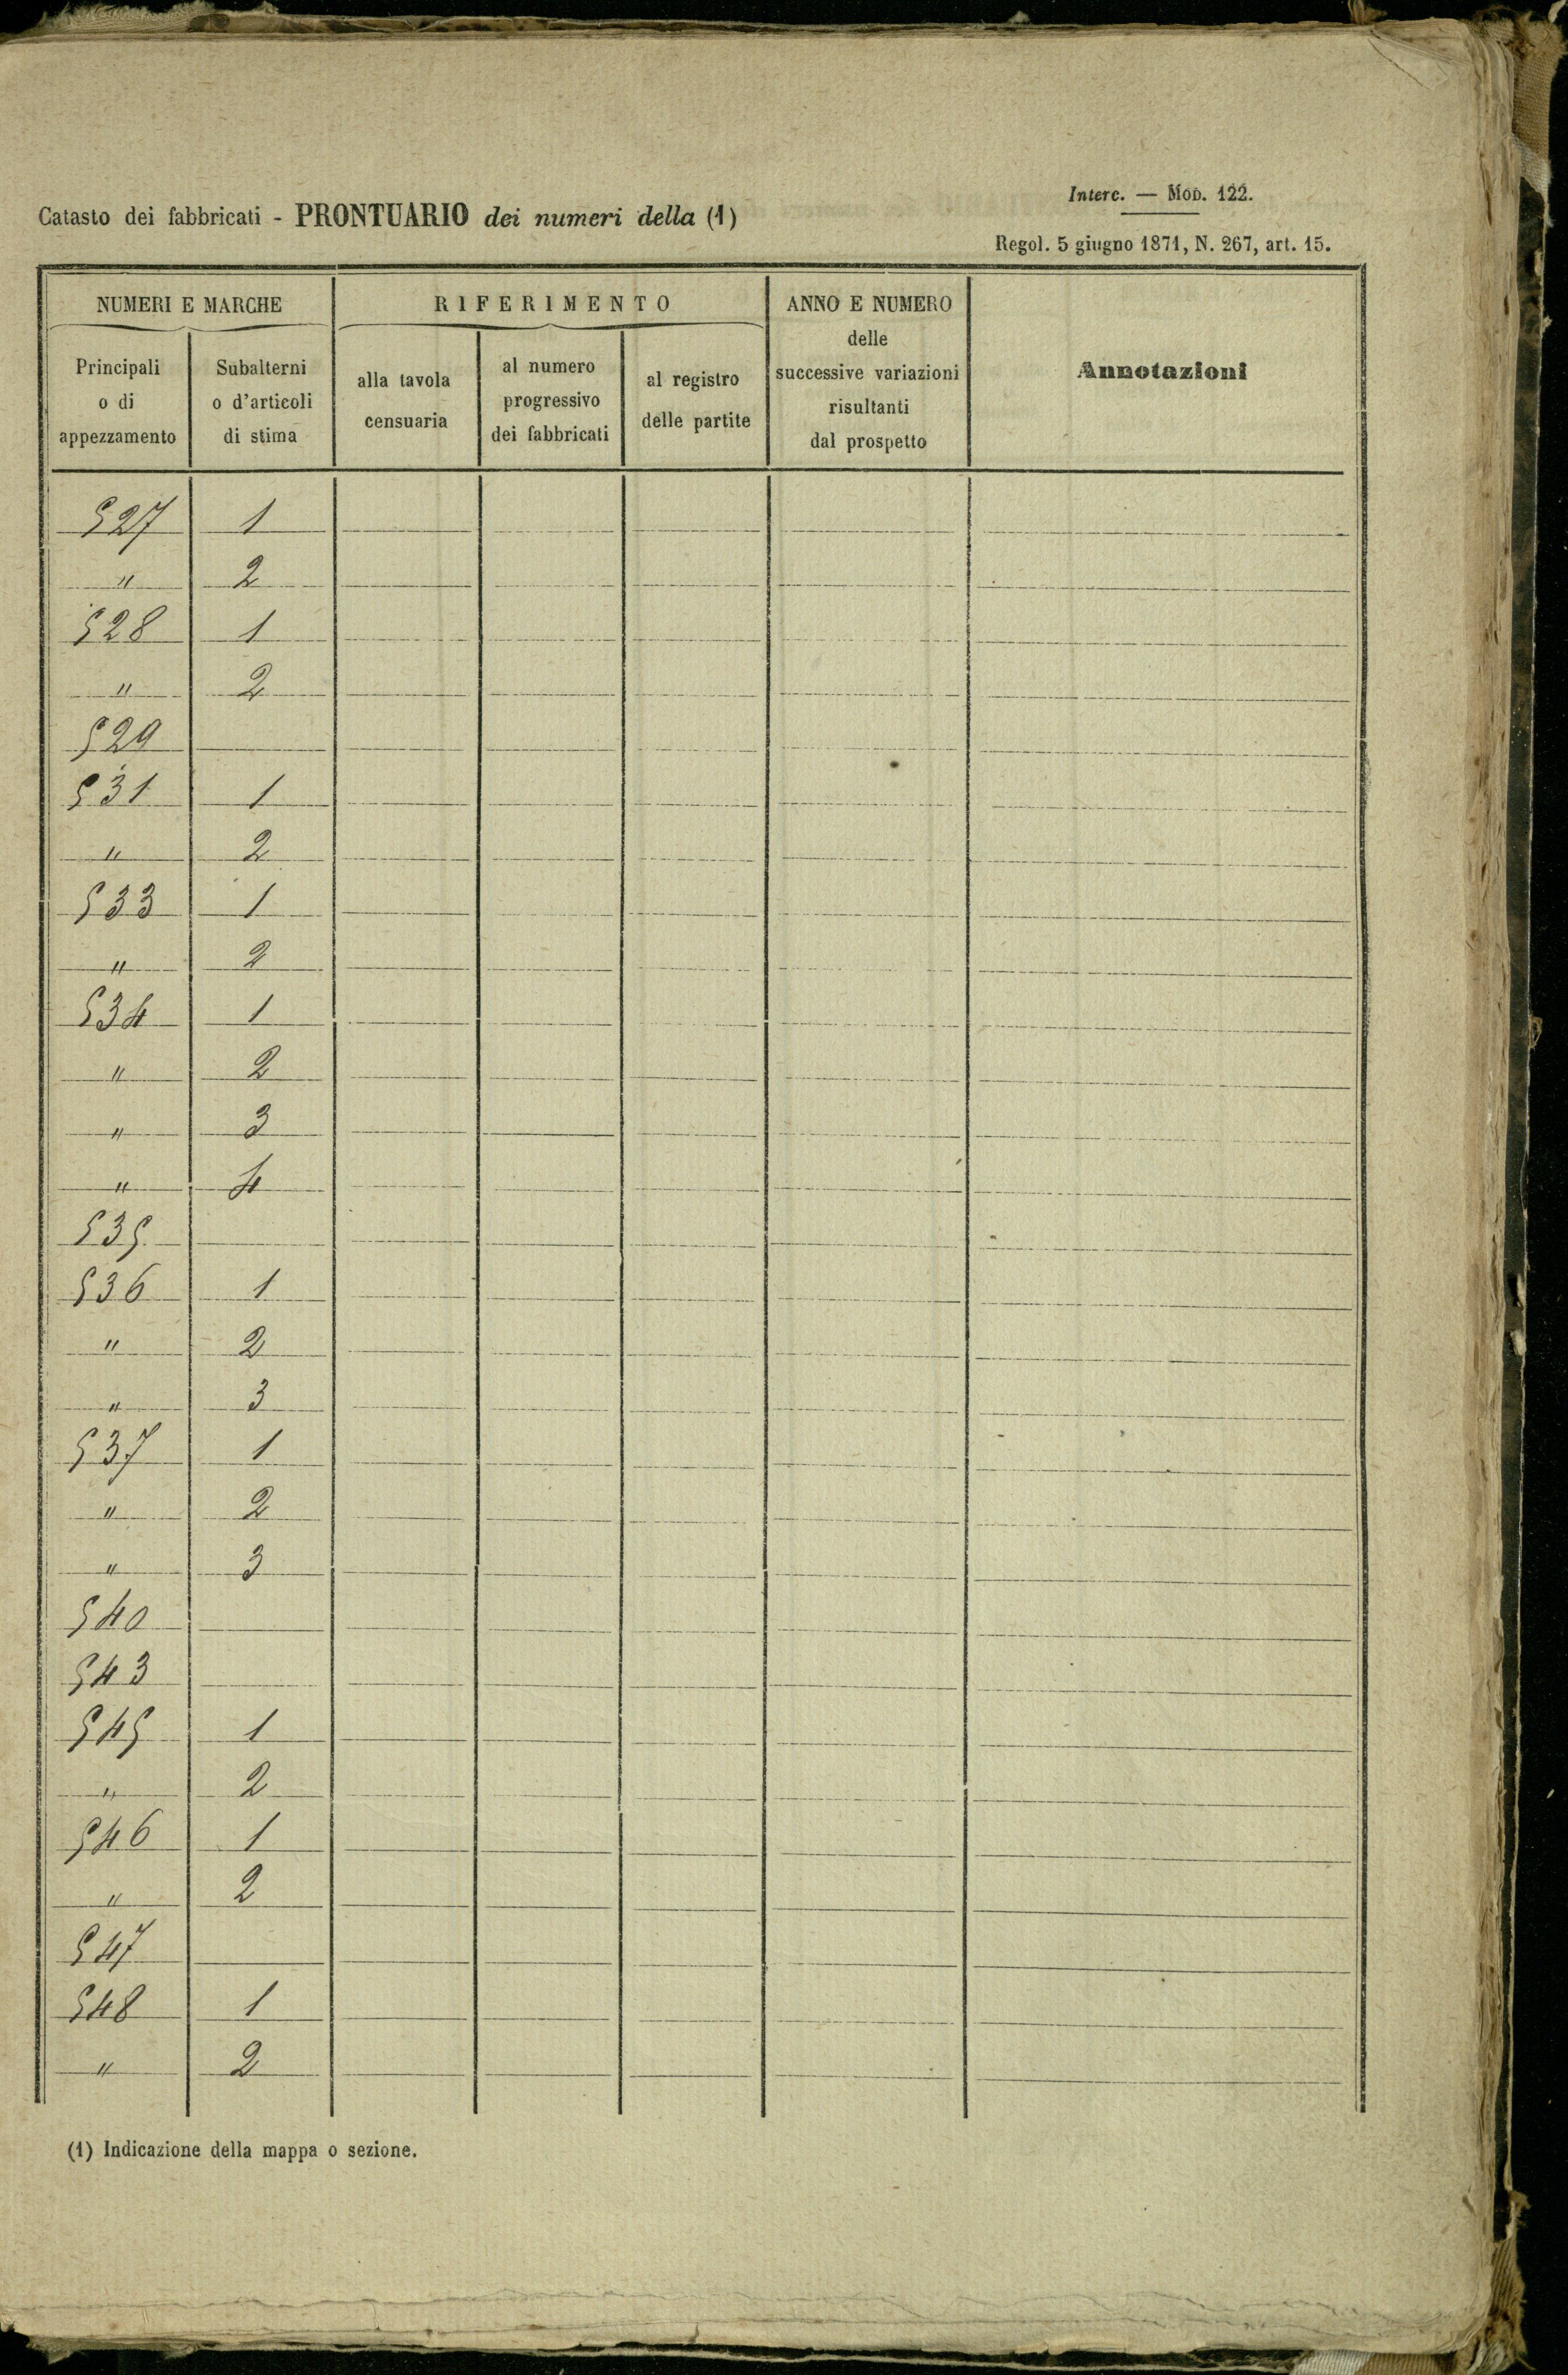 Interc. — Mod. 122.
Catasto dei fabbricati - PRONTUARIO dei numeri della (1)
Regol. 5 giugno 1871, N. 267, art. 15.
NUMERI E MARCHE
Principali
o di
appezzamento
Subalterni
o d'articoli
di stima
RIFERIMENTO
alla tavola
censuaria
al numero
progressivo
dei fabbricati
al registro
delle partite
ANNO E NUMERO
delle
successive variazioni
risultanti
dal prospetto
Annotazioni
527 1
" 2
528 1
" 2
529
531 1
" 2
533 1
" 2
534 1
" 2
" 3
" 4
535
536 1
" 2
" 3
537 1
" 2
" 3
540
543
545 1
" 2
546 1
" 2
547
548 1
" 2
(1) Indicazione della mappa o sezione.